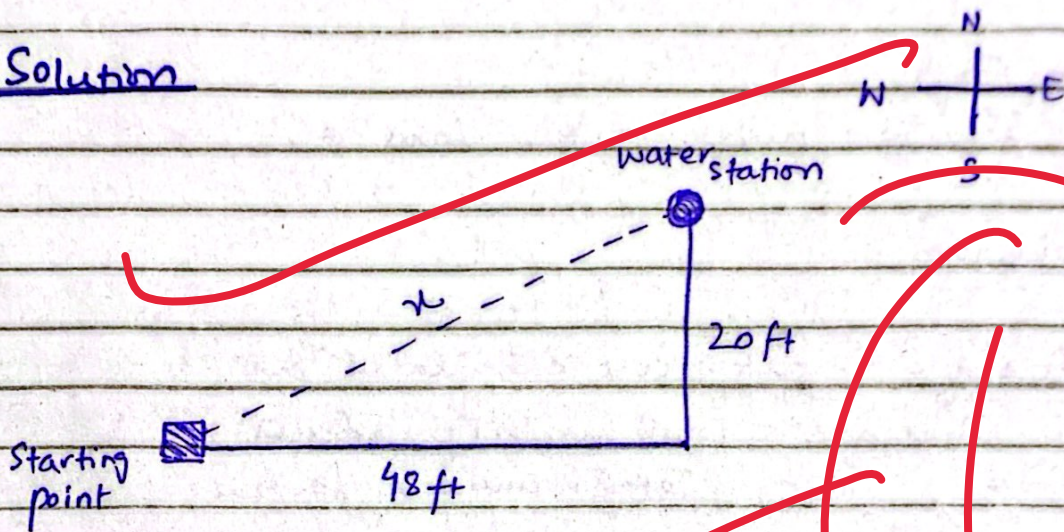 Solution
N
W E
S
water station
x
20 ft
48 ft
Starting
point